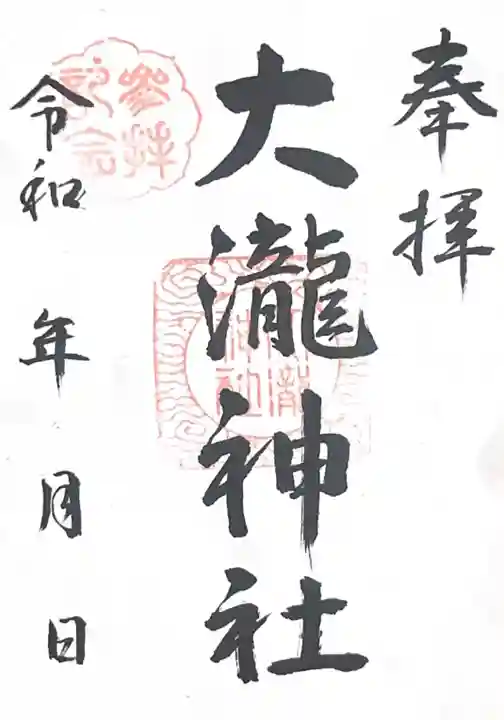 奉拝
大瀧神社
令和 年 月 日
參拝記念
大瀧神社